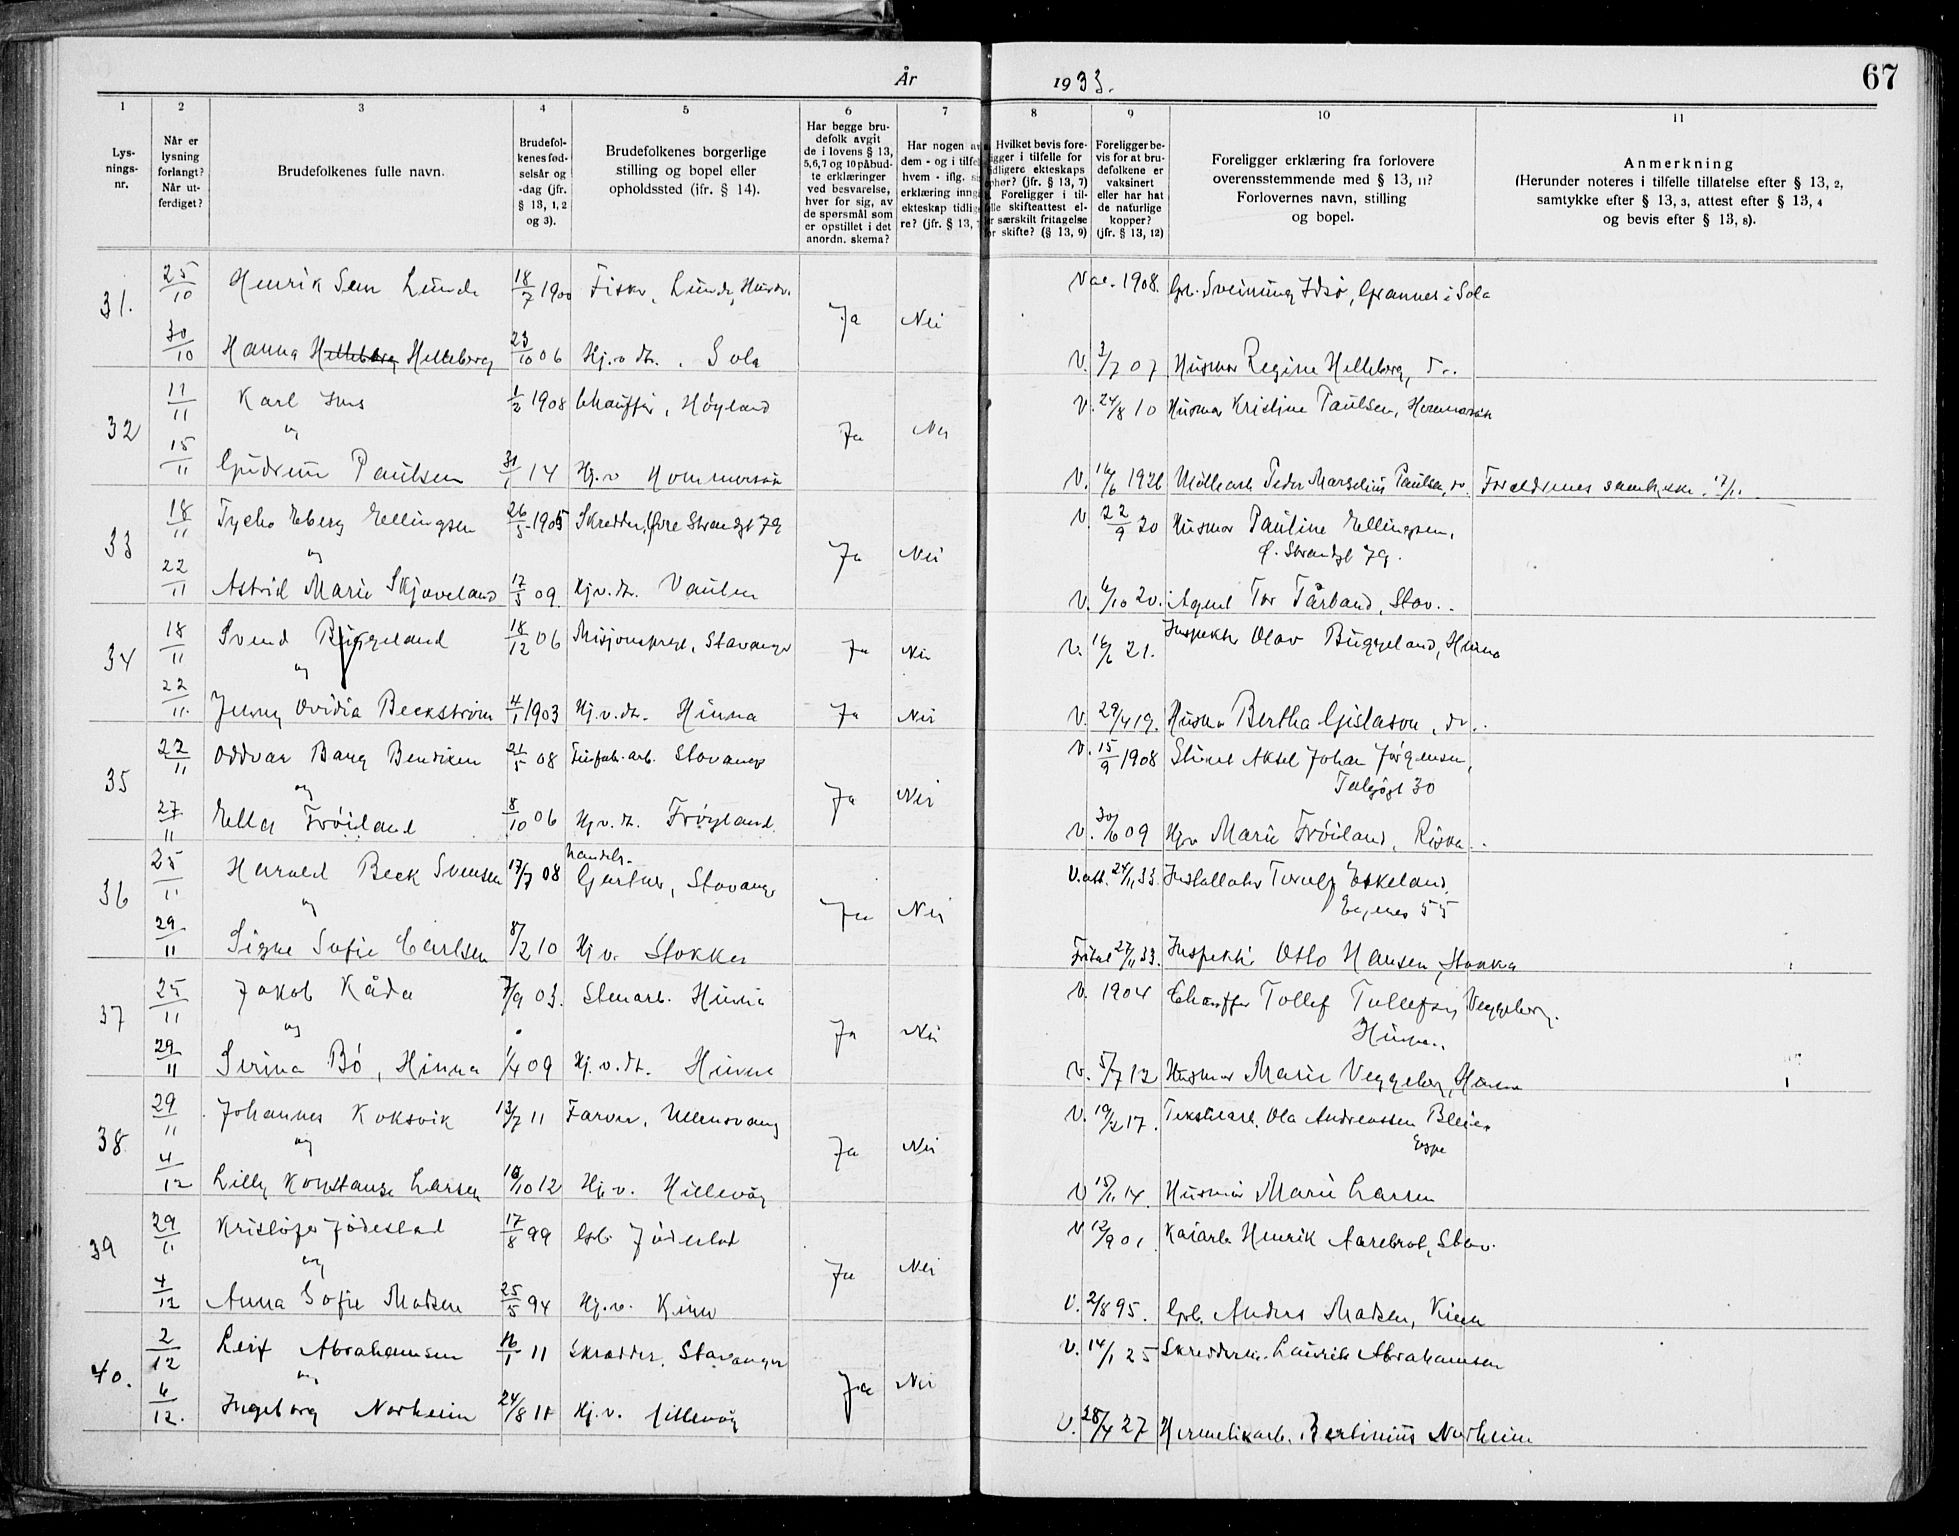 År 1933. 67
1 2 3 4 5 6 7 8 9 10 11
Lys-
nings-
nr.
Når er
lysning
forlangt?
Når ut-
ferdiget?
Brudefolkenes fulle navn.
Brudefol-
kenes fød-
selsår og
-dag (jfr.
§ 13, 1, 2
og 3).
Brudefolkenes borgerlige
stilling og bopel eller
opholdssted (ifr. § 14).
Har begge bru-
defolk avgit
de i lovens § 13,
5,6,7 og 10 påbud-
te erklæringer
ved besvarelse,
hver for sig, av
de spørsmål som
er opstillet i det
anordn. skema?
Har nogen av
dem - og i tilfel
hvem - iflg. si
erklæring inng
ekteskap tidlig
re? (jfr. § 13,
Hvilket bevis fore-
ligger i tilfelle for
tidligere ekteskaps
ophør? (jfr. § 13, 7)
Foreligger i til-
felle skifteattest el-
ler særskilt fritagelse
for skifte? (§ 13, 9)
Foreligger be-
vis for at bru-
defolkene er
vaksinert
eller har hat
de naturlige
kopper?
(jfr. § 13, 12)
Foreligger erklæring fra forlovere
overensstemmende med § 13, 11?
Forlovernes navn, stilling
og bopel.
Anmerkning
(Herunder noteres i tilfelle tillatelse efter § 13, 2,
samtykke efter § 13, 3, attest efter § 13, 4
og bevis efter § 13, 8).
31. 25/10 Henrik Sem Lunde 18/7 1900 Fisker, Lunde, Ja Nei Vac. 1908. Gb. Sveinung Idsø, Grannes i Sola
30/10 Hanna Helleberg Helleberg 23/10 06 Hj.v. dr. . Sola V. 3/7 07 Husmor Regine Helleberg, do.
32 11/11 Karl Ims 1/2 1908 Chauffør, Høyland Ja Nei V. 24/8 10 Husmor Kristine Paulsen, Hommersåk
og
15/11 Gudrun Paulsen 31/1 14 Hj.v Hommersåk V. 16/6 1926 Møllearb Peder Marselius Paulsen, do. Foreldrenes samtykke 17/11
33 18/11 Tycho Eberg Ellingsen 26/5 1905 Skredder, Øvre Strandgt 79 Ja Nei V. 22/9 20 Husmor Pauline Ellingsen,
og Ø. Strandgt 79.
22/11 Astrid Marie Skjæveland 17/5 09. Hj.v.dr. Vaulen V. 6/10 20. Agent Tor Tårland, Stav.
34 18/11 Svend Buggeland 18/12 06 Misjonsprest, Stavanger Ja Nei V. 16/6 21. Inspektør Olav Buggeland, Hinna
og
22/11. Jenny Ovidia Beckstrøm 4/1 1903 Hj.v.dr. Hinna Ja Nei V. 29/4 19. Husmor Bertha Gislason, do.
35 22/11 Oddvar Bang Bendixen 21/5 08 arb. Stavanger Ja Nei V. 15/9 1908 Aksel Johan Jørgensen,
og 30
27/11 Ella Frøiland 8/10 06 Hj.v.dr. Frøyland. V. 30/6 09 Hjv Marie Frøiland, Riska.
36 25/11 Harald Beck Svensen 17/7 08 handels- Gartner, Stavanger Ja Nei V.att. 24/11 33. Installatør Torolf Eskeland,
og Egenes 55
29/11 Signe Sofie Carlsen 8/2 10 Hj v. Stokka Fritat 27/11 33. Inspektør Otto Hansen, Stokka
37 25/11 Jakob Kåda 7/9 03. Stenarb. Hinna Ja Nei V. 1904 Chauffør Tollef Tollefsen Veggeberg.
og Hinna.
29/11 Serina Bø, Hinna 1/4 09 Hj.v.dr. Hinna V. 5/7 12 Husmor Marie Veggeberg, Hinna
38 29/11 Johannes Koksvik 13/7 11 Farver, Ullensvang Ja Nei V. 19/2 17. Tekstilarb. Ola Andreassen Bleie,
og Espe
4/12 Lilly Konstanse Larsen 10/10 12 Hj.v. Hillevåg V 15/1 14. Husmor Marie Larsen
39 29/11 Kristofer Jødestad 17/8 99 Gb. Jødestad Ja Nei V 12/9 01. Kaiarb Henrik Aarebrot, Stav.
og
4/12 Anna Sofie Madsen 25/5 94 Hj.v. Kinn V. 2/8 95. Gb. Anders Madsen, Kinn
40. 2/12 Leif Abrahamsen 16/1 11 Skredder, Stavanger Ja Nei V. 14/1 25 Skredderm. Laurits Abrahamsen
og
6/12. Ingeborg Norheim 24/8 11 Hj.v. Hillevåg V. 28/4 27 Hermetikarb. Bertinius Norheim